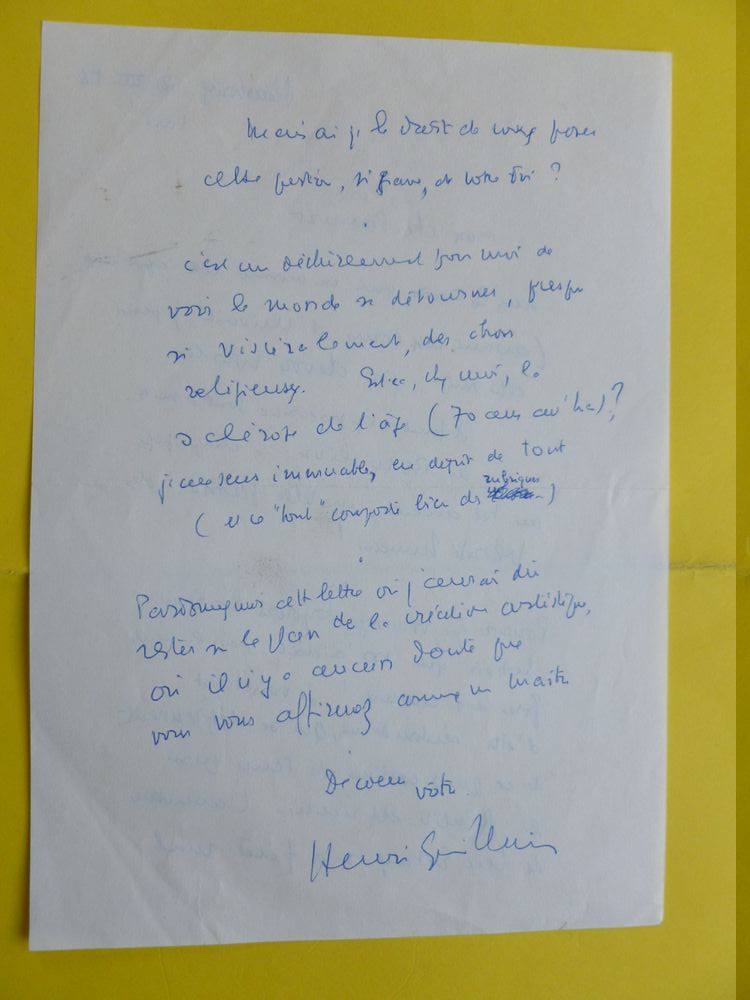 Mais ai je le droit de vous poser
cette question, si grave, et votre foi ?
C'est un déchirement pour moi de
voir le monde se détourner, presque
si viscéralement, des choses
religieuses. Est-ce, chez moi, la
sclérose de l'âge (70 ans
je me sens immuable, en dépit de tout
(et ce "tout" comporte bien des rubriques)
Pardonnez-moi cette lettre où j'aurais dû
rester sur le plan de la création artistique,
où il n'y a aucun doute que
vous vous affirmez comme un maître
De coeur vôtre.
Henri Guillemin